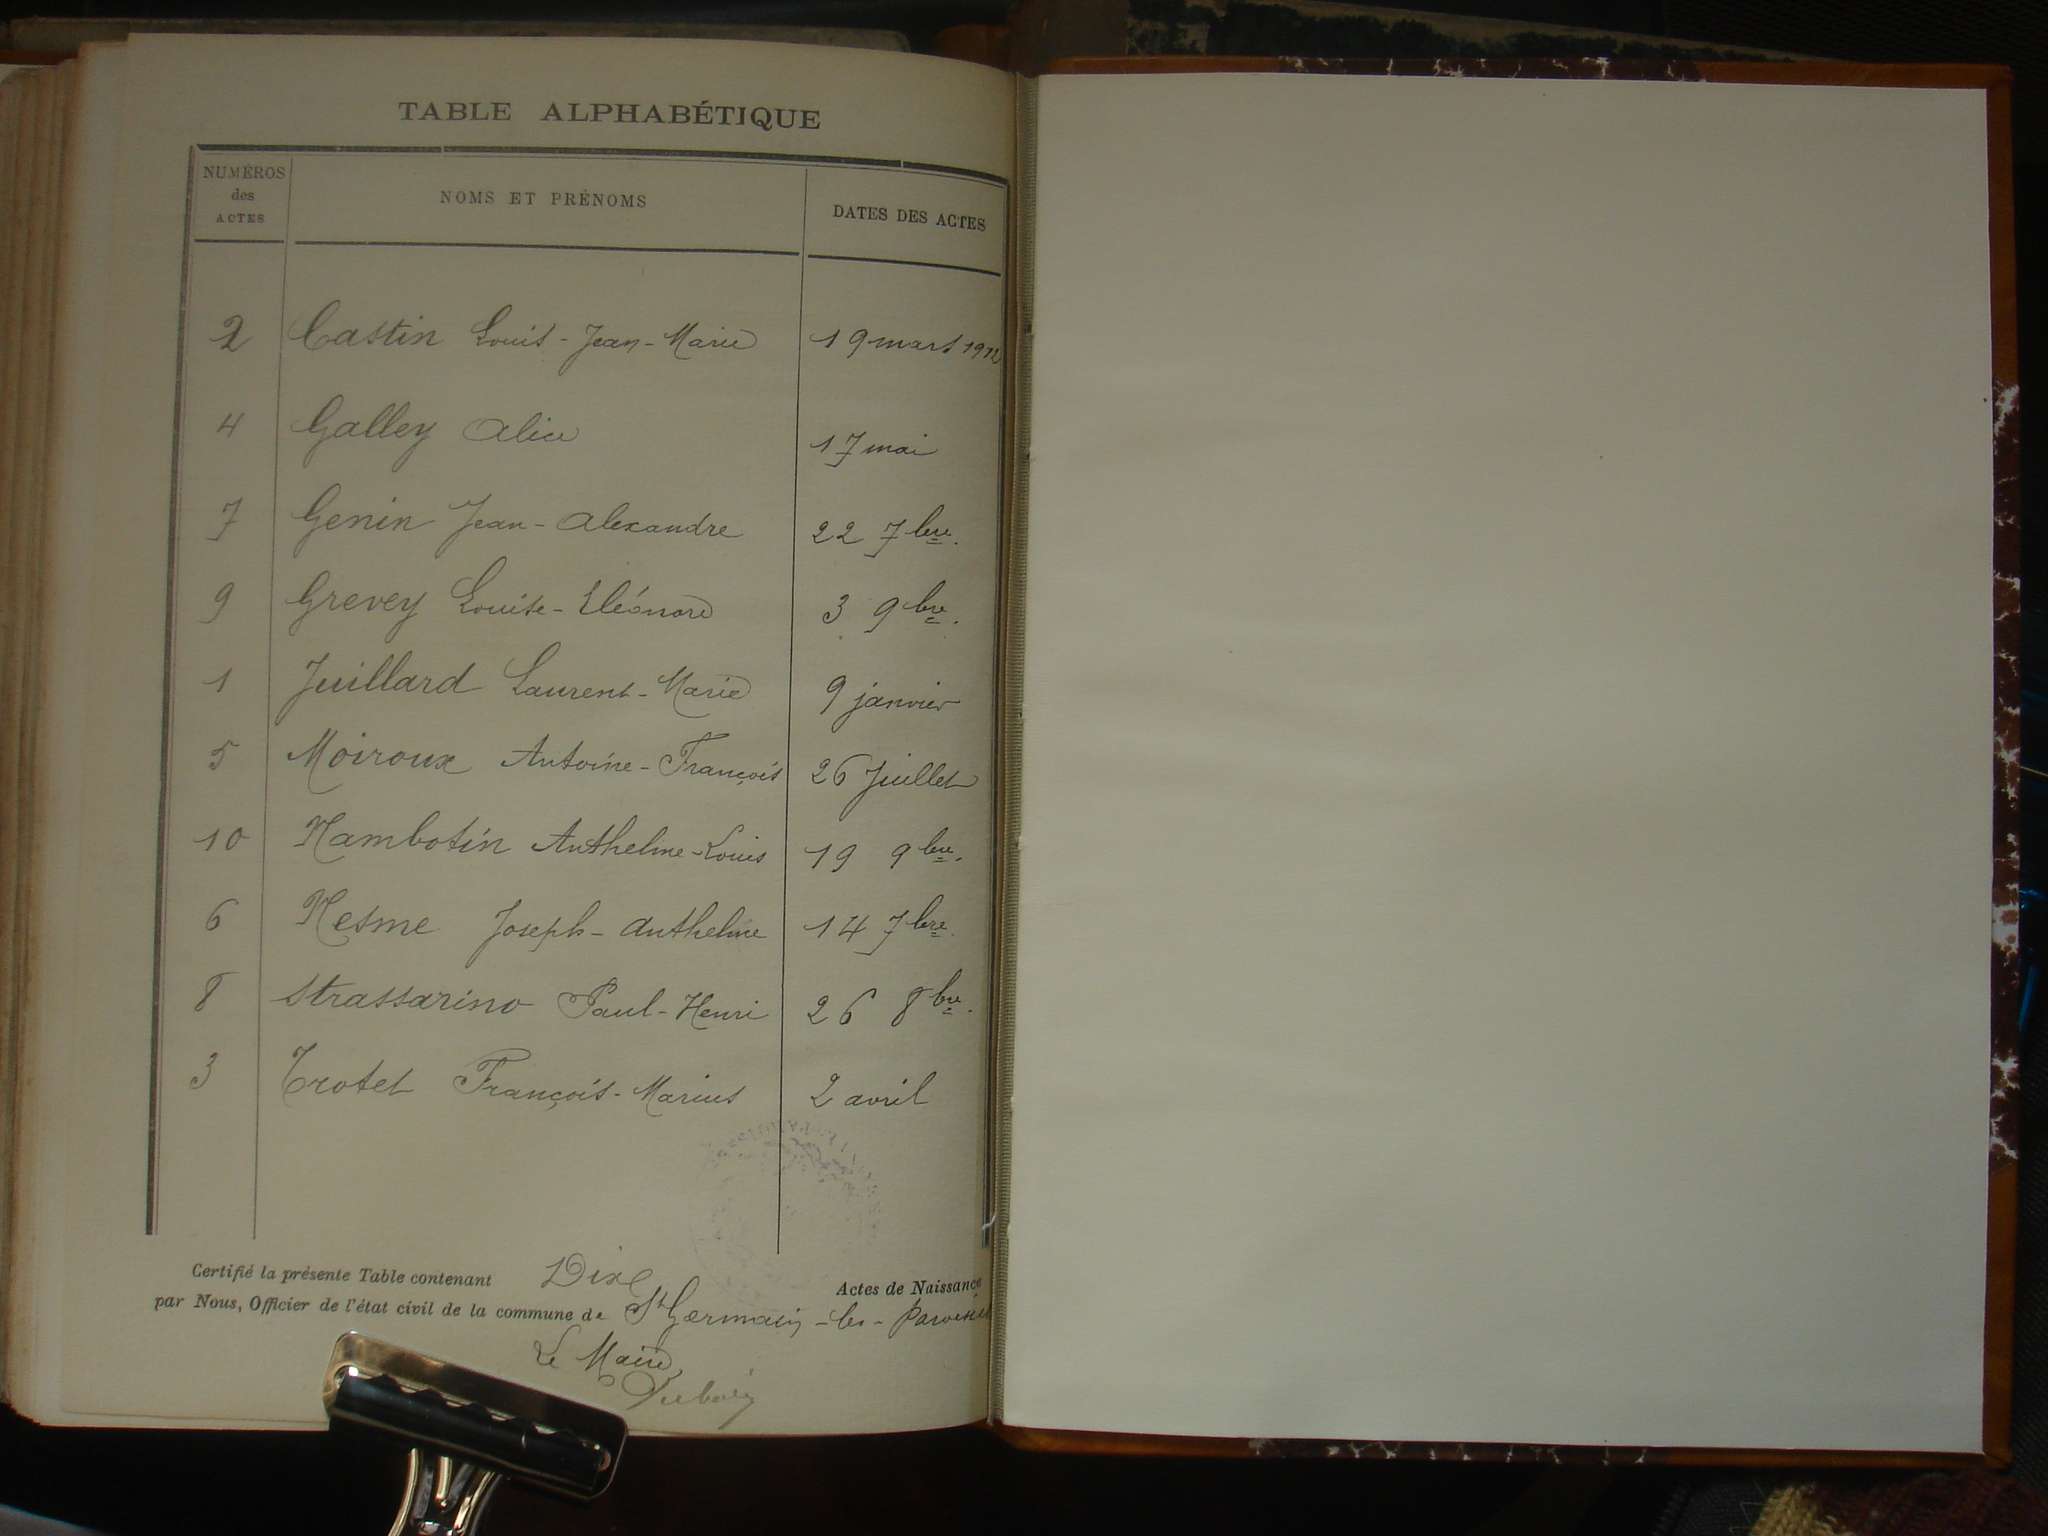 TABLE ALPHABÉTIQUE
NUMÉROS des ACTES NOMS ET PRÉNOMS DATES DES ACTES
2 Castin Louis-Jean-Marie 19 mars 1912
4 Galley Alice 17 mai
7 Genin Jean-Alexandre 22 7bre.
9 Grevey Louise-Eléonore 3 9bre.
1 Juillard Laurent-Marie 9 janvier
5 Moiroux Antoine-François 26 Juillet
10 Nambotin Anthelme-Louis 19 9bre.
6 Nesme Joseph-Anthelme 14 7bre.
8 Strassarino Paul-Henri 26 8bre.
3 Trotet François-Marius 2 avril
Certifié la présente Table contenant Dix Actes de Naissance
par Nous, Officier de l'état civil de la commune de St Germain-les-Paroisses
Le Maire